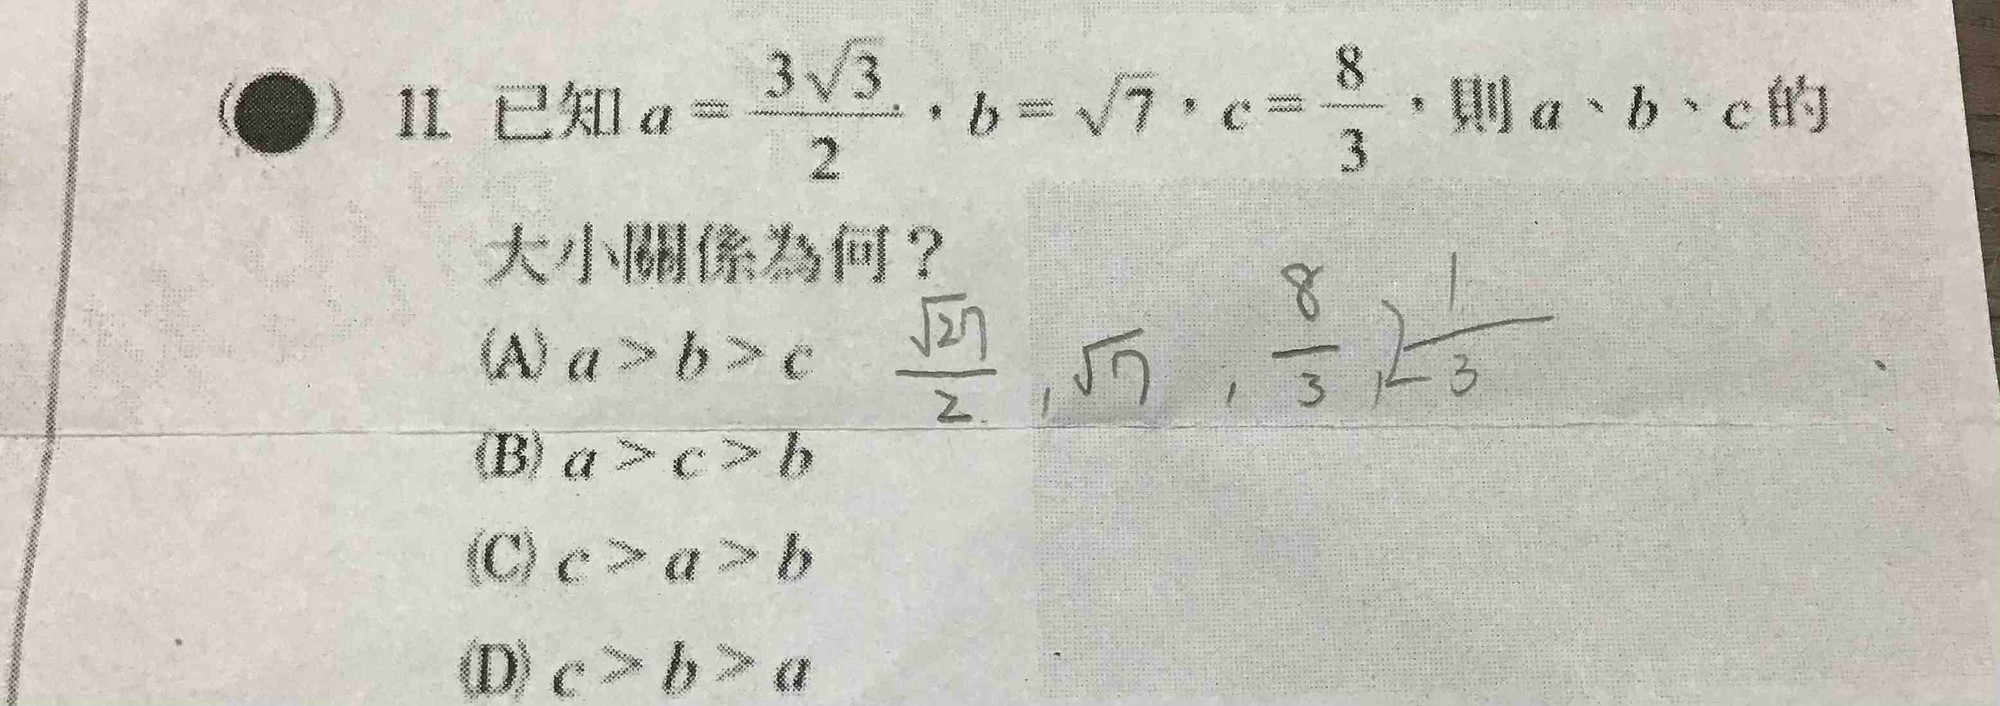 ( ) 11. 已知 a = 3√3/2，b = √7，c = 8/3，則 a、b、c 的
大小關係為何？
(A) a > b > c
√27/2 , √7 , 8/3 , 2 1/3
(B) a > c > b
(C) c > a > b
(D) c > b > a